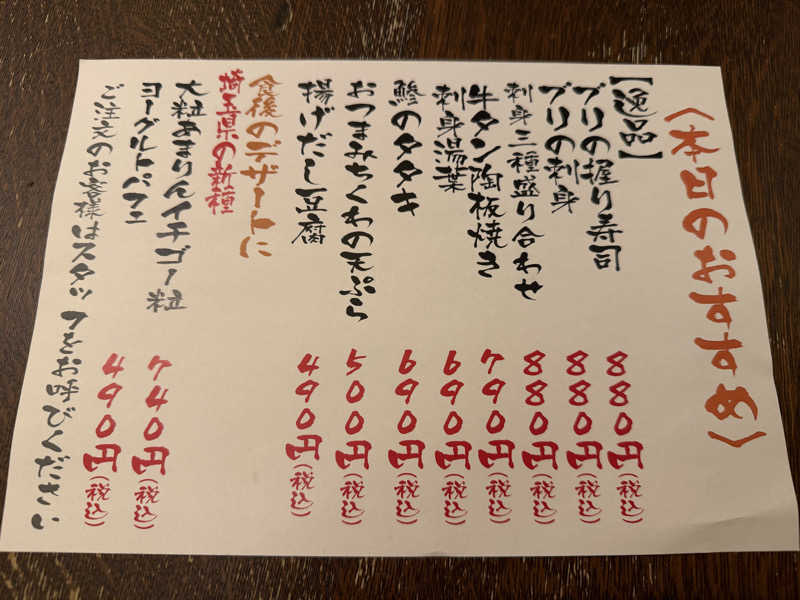 〈本日のおすすめ〉
【逸品】
ブリの握り寿司 880円(税込)
ブリの刺身 880円(税込)
刺身三種盛り合わせ 880円(税込)
牛タン陶板焼き 790円(税込)
刺身湯葉 690円(税込)
鯵のタタキ 690円(税込)
おつまみちくわの天ぷら 500円(税込)
揚げだし豆腐 490円(税込)
食後のデザートに
埼玉県の新種
大粒あまりんイチゴ一粒 740円(税込)
ヨーグルトパフェ 490円(税込)
ご注文のお客様はスタッフをお呼びください